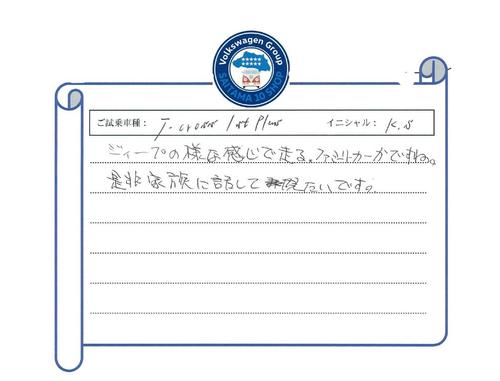 Volkswagen Group
SAITAMA 10 SHOP
ご試乗車種： T-cross 1st Plus イニシャル： K.S
ジィープの様な感じで走る。ファミリーカーかですね。
是非家族に話して現たいです。